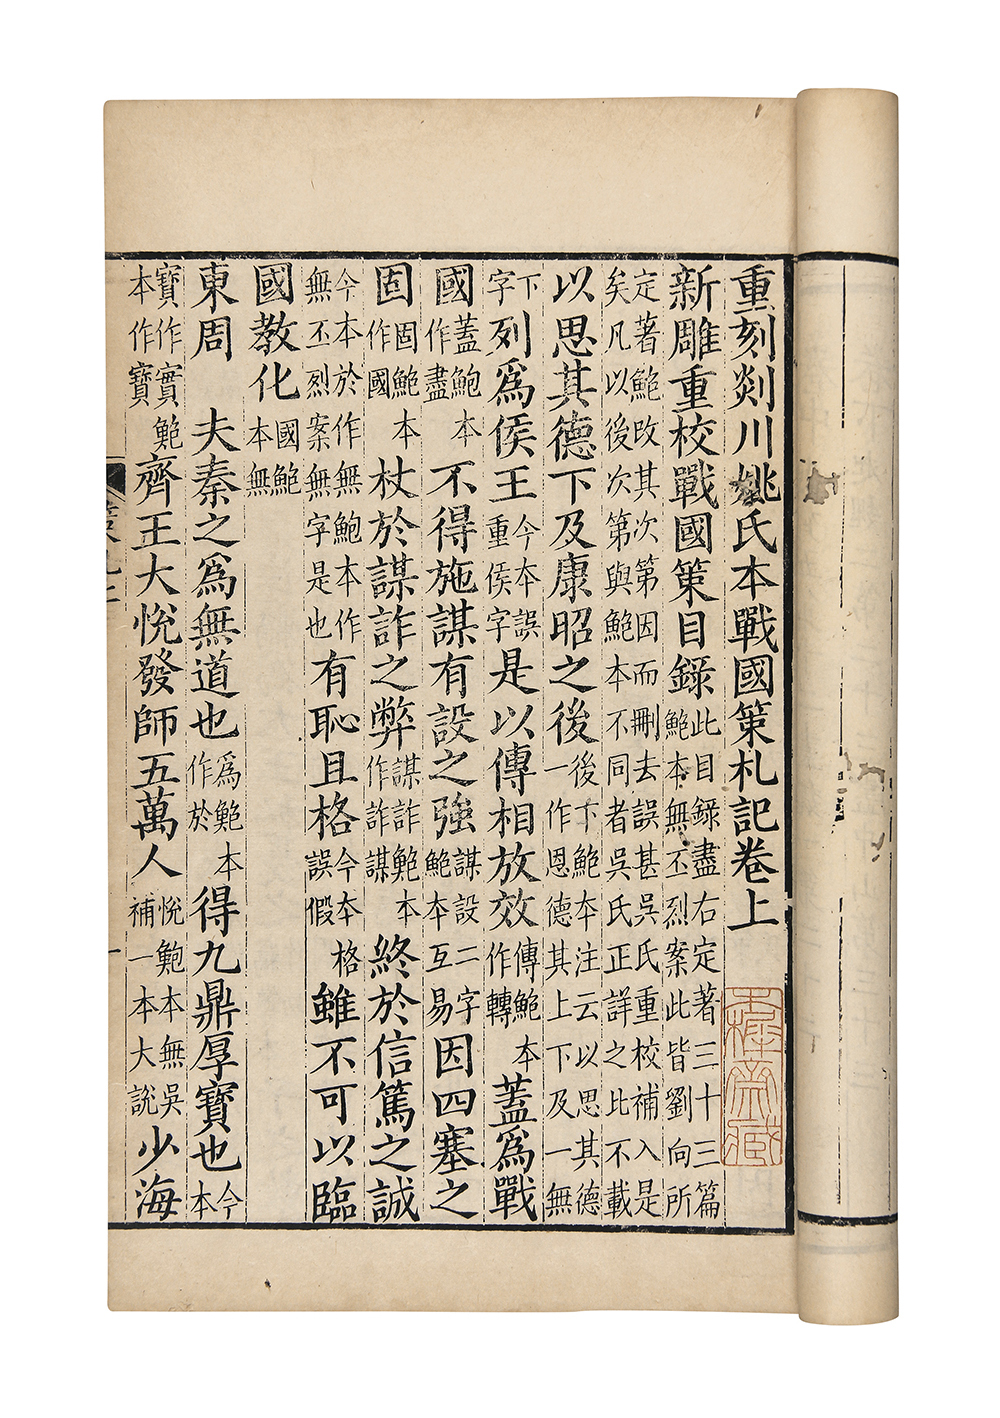 重刻剡川姚氏本戰國策札記卷上
新雕重校戰國策目錄此目錄盡右定著三十三篇鮑本無丕烈案此皆劉向所
定著鮑改其次第因而刪去誤甚吳氏重校補入是矣凡以後次第與鮑本不同者吳氏正詳之比不載
以思其德下及康昭之後後下鮑本注云以思其德一作恩德其上下及一無
下字列爲侯王今本誤重侯字是以傳相放效傳鮑本作轉蓋爲戰
國蓋鮑本作盡不得施謀有設之強謀設二字鮑本互易因四塞之
固固鮑本作國杖於謀詐之弊謀詐鮑本作詐謀終於信篤之誠
今本於作無鮑本作無丕烈案無無字是也有恥且格今本格誤假雖不可以臨
國教化國鮑本無
東周　夫秦之爲無道也爲鮑本作於得九鼎厚寶也今本
寶作實鮑本作寶齊王大悅發師五萬人悅鮑本無吳補一本大說少海